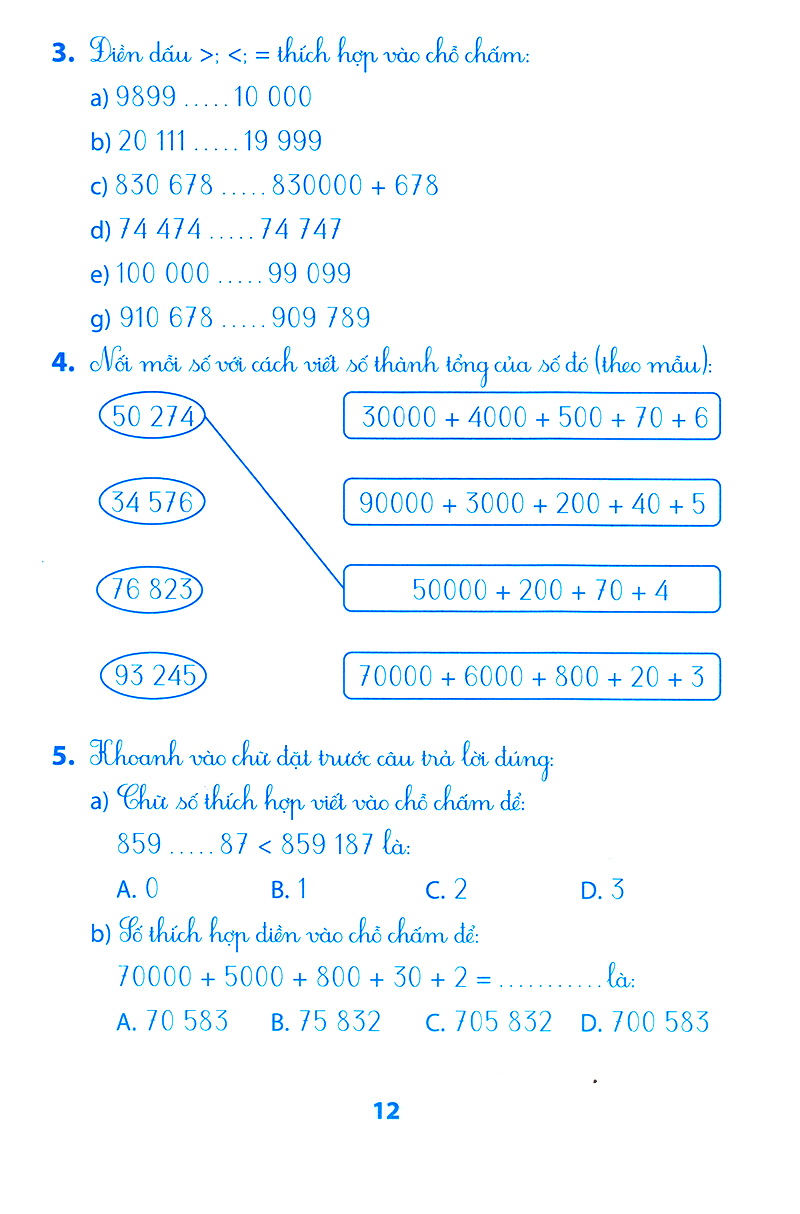 3. Điền dấu >; <; = thích hợp vào chỗ chấm:
a) 9899 ..... 10 000
b) 20 111 ..... 19 999
c) 830 678 ..... 830000 + 678
d) 74 474 ..... 74 747
e) 100 000 ..... 99 099
g) 910 678 ..... 909 789
4. Nối mỗi số với cách viết số thành tổng của số đó (theo mẫu):
50 274 30000 + 4000 + 500 + 70 + 6
34 576 90000 + 3000 + 200 + 40 + 5
76 823 50000 + 200 + 70 + 4
93 245 70000 + 6000 + 800 + 20 + 3
5. Khoanh vào chữ đặt trước câu trả lời đúng:
a) Chữ số thích hợp viết vào chỗ chấm để:
859 ..... 87 < 859 187 là:
A. 0 B. 1 C. 2 D. 3
b) Số thích hợp điền vào chỗ chấm để:
70000 + 5000 + 800 + 30 + 2 = ............ là:
A. 70 583 B. 75 832 C. 705 832 D. 700 583
12